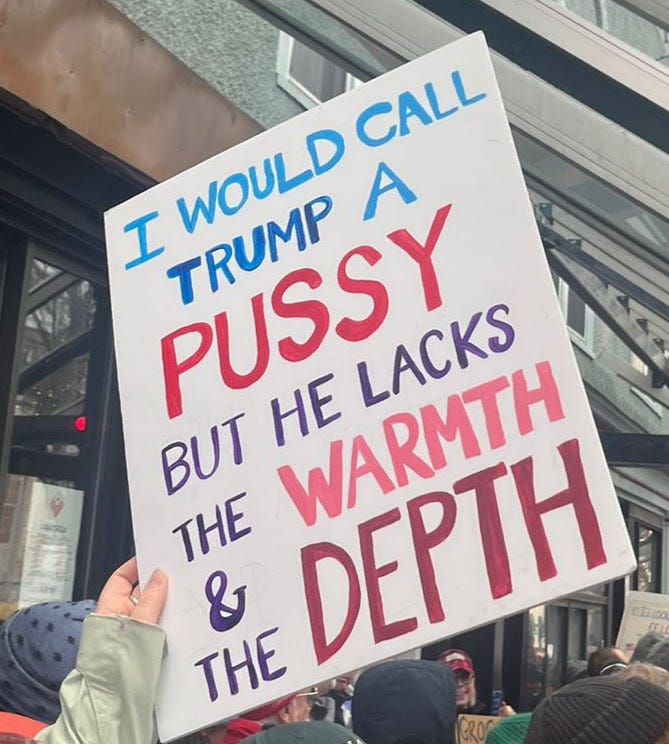 I WOULD CALL
TRUMP A
PUSSY
BUT HE LACKS
THE WARMTH
& DEPTH
THE